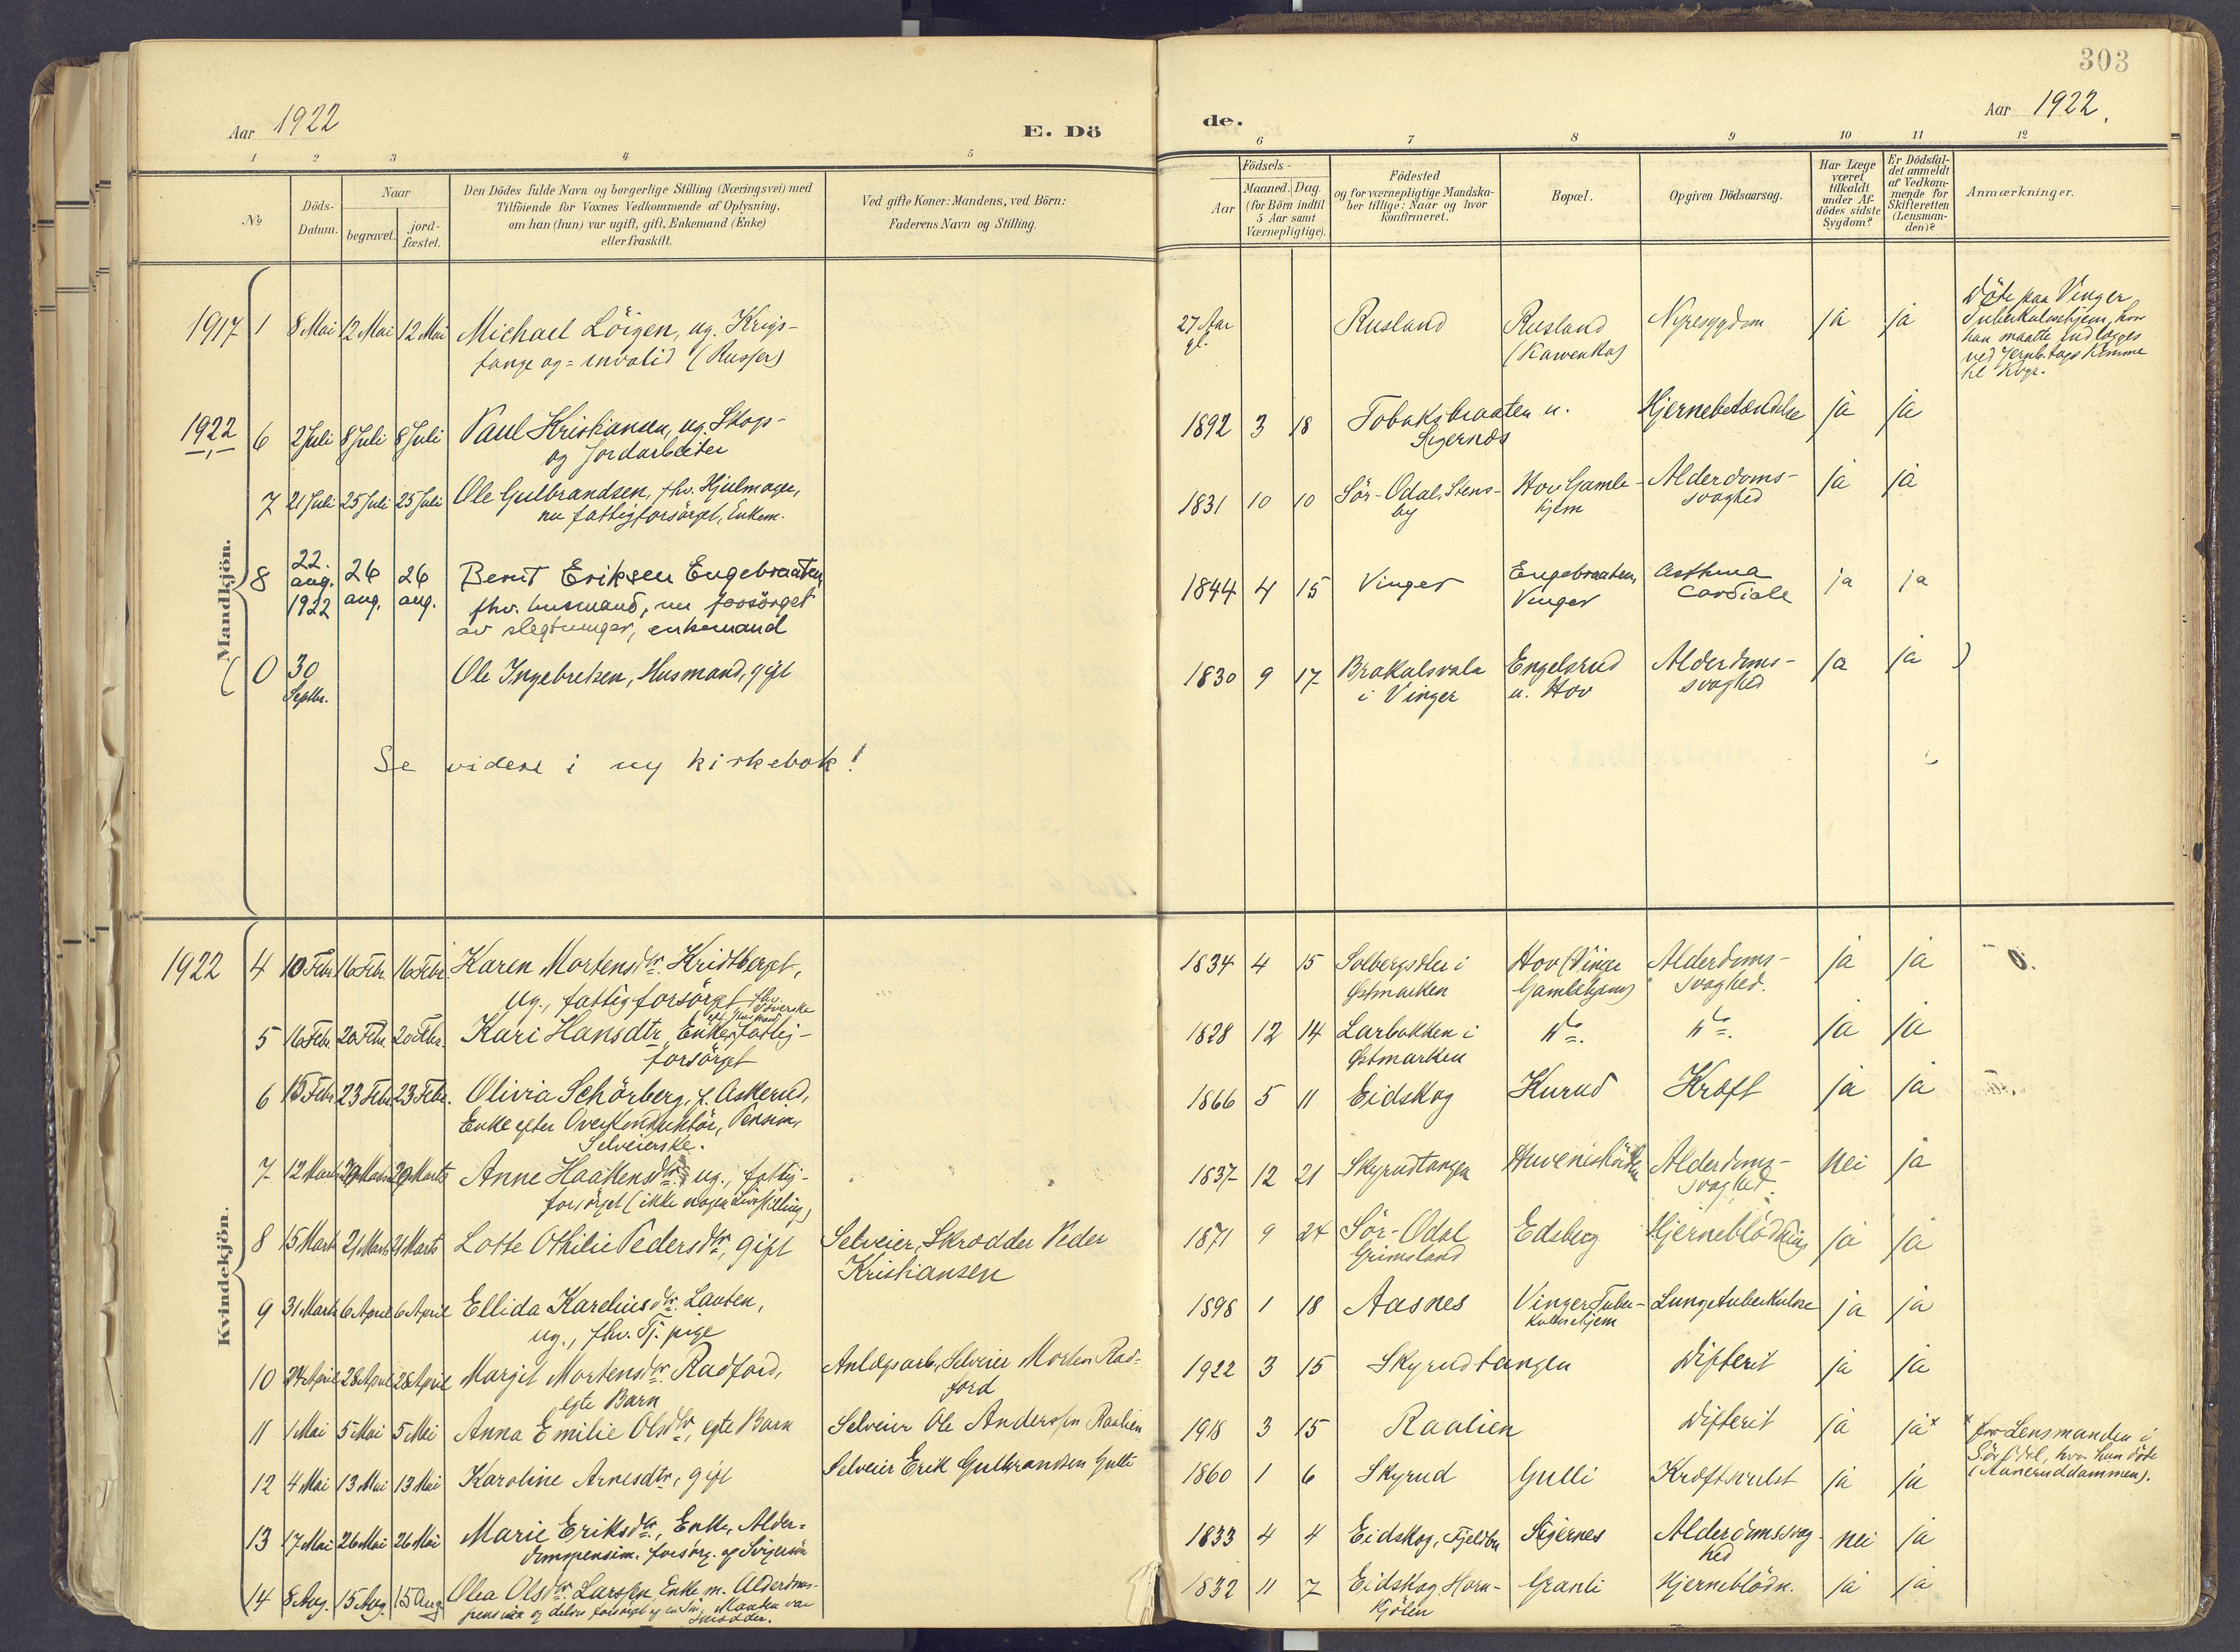 303
Aar 1922
E. Dö
de.
Aar 1922.
1 2 3 4 5
6 7 8 9 10 11 12
№
Döds-
Datum.
Naar
begravet.
jord-
fæstet.
Den Dödes fulde Navn og borgerlige Stilling (Næringsvei) med
Tilföiende for Voxnes Vedkommende af Oplysning,
om han (hun) var ugift, gift, Enkemand (Enke)
eller fraskilt.
Ved gifte Koner: Mandens, ved Börn:
Faderens Navn og Stilling.
Födsels-
Aar
Maaned. Dag.
(for Börn indtil
5 Aar samt
Værnepligtige).
Födested
og for værnepligtige Mandska-
ber tillige: Naar og hvor
konfirmeret.
Bopæl.
Opgiven Dödsaarsag.
Har Læge
været
tilkaldt
under Af-
dödes sidste
Sygdom?
Er Dödsfal-
det anmeldt
af Vedkom-
mende for
Skifteretten
(Lensman-
den)?
Anmærkninger.
Mandkjön.
1917 1 8 Mai 12 Mai 12 Mai Michael Löigen, ug. Krigs-
fange og = invalid (Russer)
27 Aar
gl.
Rusland
Rusland
(Kawenka)
Nyresygdom ja ja
Döte paa Vinger
Tuberkulosehjem, hvor
han maatte indlægges
ved Jernb.togs Komme
til Kvgr.
1922 6 2 Juli 8 Juli 8 Juli Paul Kristiansen, ug. Skogs-
og Jordarbeiter
1892 3 18 Tobaksbraaten u.
Sigernes
Hjernebetændelse ja ja
7 21 Juli 25 Juli 25 Juli Ole Gulbrandsen, fhv. Hjulmager,
nu fattigforsörget, Enkem.
1831 10 10 Sör-Odal, Stens-
by
Hov Gamle-
hjem
Alderdoms-
svaghed ja ja
8 22.
aug.
1922
26
aug.
26
aug.
Bernt Eriksen Engebraaten
fhv. husmand, nu forsörget
av slegtninger, enkemand
1844 4 15 Vinger
Engebraaten,
Vinger
Asthma
cardiale ja ja
( 0 30
Septbr.
Ole Ingebretsen, Husmand, gift
1830 9 17 Brakalsvala
i Vinger
Engelsrud
u. Hov
Alderdoms-
svaghed ja ja )
Se videre i ny kirkebok!
Kvindekjön.
1922 4 10 Febr. 16 Febr. 16 Febr. Karen Mortensdtr. Kridtberget,
ug., fattigforsörget fhv.
Væverske
1834 4 15 Solbergsæter i
Östmarken
Hov (Vinger
Gamlehjem)
Alderdoms-
svaghed. ja ja 0.
5 16 Febr. 20 Febr. 20 Febr. Kari Hansdtr Enke, fattig-
forsörget
eft. Husmand
1828 12 14 Larbakken i
Östmarken
ja ja
6 15 Febr. 23 Febr. 23 Febr. Olivia Schörberg, f. Askerud,
Enke efter Overkonduktör, Pension,
Selveierske.
1866 5 11 Eidskog Kurud Kræft ja ja
7 12 Marts 29 Marts 29 Marts Anne Haakensdtr. ug., fattig-
forsörget (ikke nogen Livsstilling)
1837 12 21 Skyrudtangen
Alderdoms-
svaghed. nei ja
8 15 Marts 21 Marts 21 Marts Lotte Othilie Pedersdtr, gift
Selveier, Skrædder Peder
Kristiansen
1871 9 24 Sör-Odal
Grimsland
Edsberg Hjerneblödning ja ja
9 31 Marts 6 April 6 April Ellida Kareliusdtr. Lauten,
ug., fhv. Tj. pige
1898 1 18 Aasnes
Vinger Tuber-
kulosehjem
Lungetuberkulose ja ja
10 24 April 28 April 28 April Margit Mortensdtr. Radford,
egte Barn
Anlægsarb., Selveier Morten Rad-
ford
1922 3 15 Skyrudtangen Difterit ja ja
11 1 Mai 5 Mai 5 Mai Anna Emilie Olsdtr, egte Barn
Selveier Ole Anderssen Raalien
1918 3 15 Raalien Difterit ja ja*
* for Lensmanden i
Sör Odal, hvor hun döte
(Aaneruddammen).
12 4 Mai 13 Mai 13 Mai Karoline Arnesdtr, gift
Selveier Erik Gulbrandsen Gulli
1860 1 6 Skyrud Gulli Kræftsvulst ja ja
13 17 Mai 26 Mai 26 Mai Marie Eriksdtr., Enke, Alder-
domspension. forsörg. af Svigersön
1833 4 4 Eidskog, Fjeldbu Sigernes Alderdomssvag-
hed nei ja
14 8 Aug. 15 Aug. 15 Aug Olea Olsdtr. Larssen, Enke m. Alderdoms-
pension og delvis forsörget af en Sön. Manden var
Snedder.
1832 11 7 Eidskog, Horn-
kjölen
Granli Hjerneblödn. ja ja